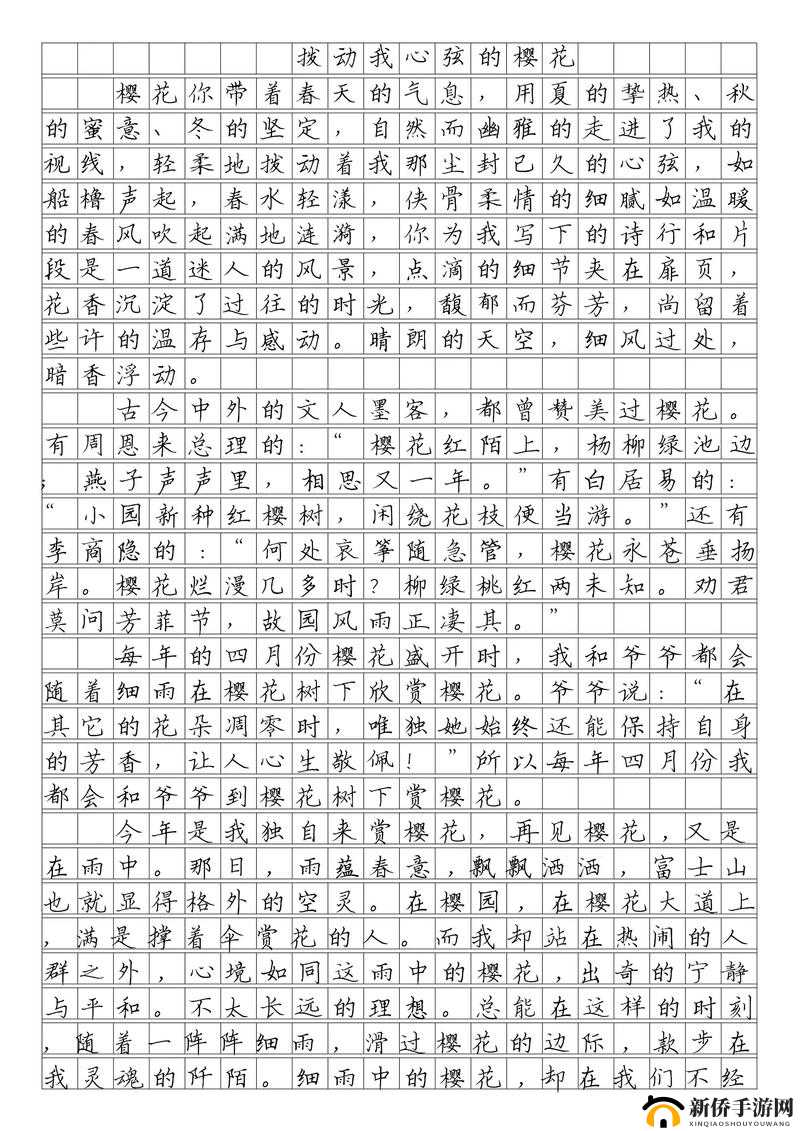 拨动我心弦的樱花
樱花你带着春天的气息，用夏的挚热、秋
的蜜意、冬的坚定，自然而幽雅的走进了我的
视线，轻柔地拨动着我那尘封已久的心弦，如
船橹声起，春水轻漾，侠骨柔情的细腻如温暖
的春风吹起满地涟漪，你为我写下的诗行和片
段是一道迷人的风景，点滴的细节夹在扉页，
花香沉淀了过往的时光，馥郁而芬芳，尚留着
些许的温存与感动。晴朗的天空，细风过处，
暗香浮动。
古今中外的文人墨客，都曾赞美过樱花。
有周恩来总理的：“樱花红陌上，杨柳绿池边
；燕子声声里，相思又一年。”有白居易的：
“小园新种红樱树，闲绕花枝便当游。”还有
李商隐的：“何处哀筝随急管，樱花永苍垂扬
岸。樱花烂漫几多时？柳绿桃红两未知。劝君
莫问芳菲节，故园风雨正凄其。”
每年的四月份樱花盛开时，我和爷爷都会
随着细雨在樱花树下欣赏樱花。爷爷说：“在
其它的花朵凋零时，唯独她始终还能保持自身
的芳香，让人心生敬佩！”所以每年四月份我
都会和爷爷到樱花树下赏樱花。
今年是我独自来赏樱花，再见樱花，又是
在雨中。那日，雨蕴春意，飘飘洒洒，富士山
也就显得格外的空灵。在樱园，在樱花大道上
，满是撑着伞赏花的人。而我却站在热闹的人
群之外，心境如同这雨中的樱花，出奇的宁静
与平和。不太长远的理想。总能在这样的时刻
，随着一阵阵细雨，滑过樱花的边际，款步在
我灵魂的阡陌。细雨中的樱花，却在我们不经
新侨手游网
XINQIAOSHOUYOUWANG